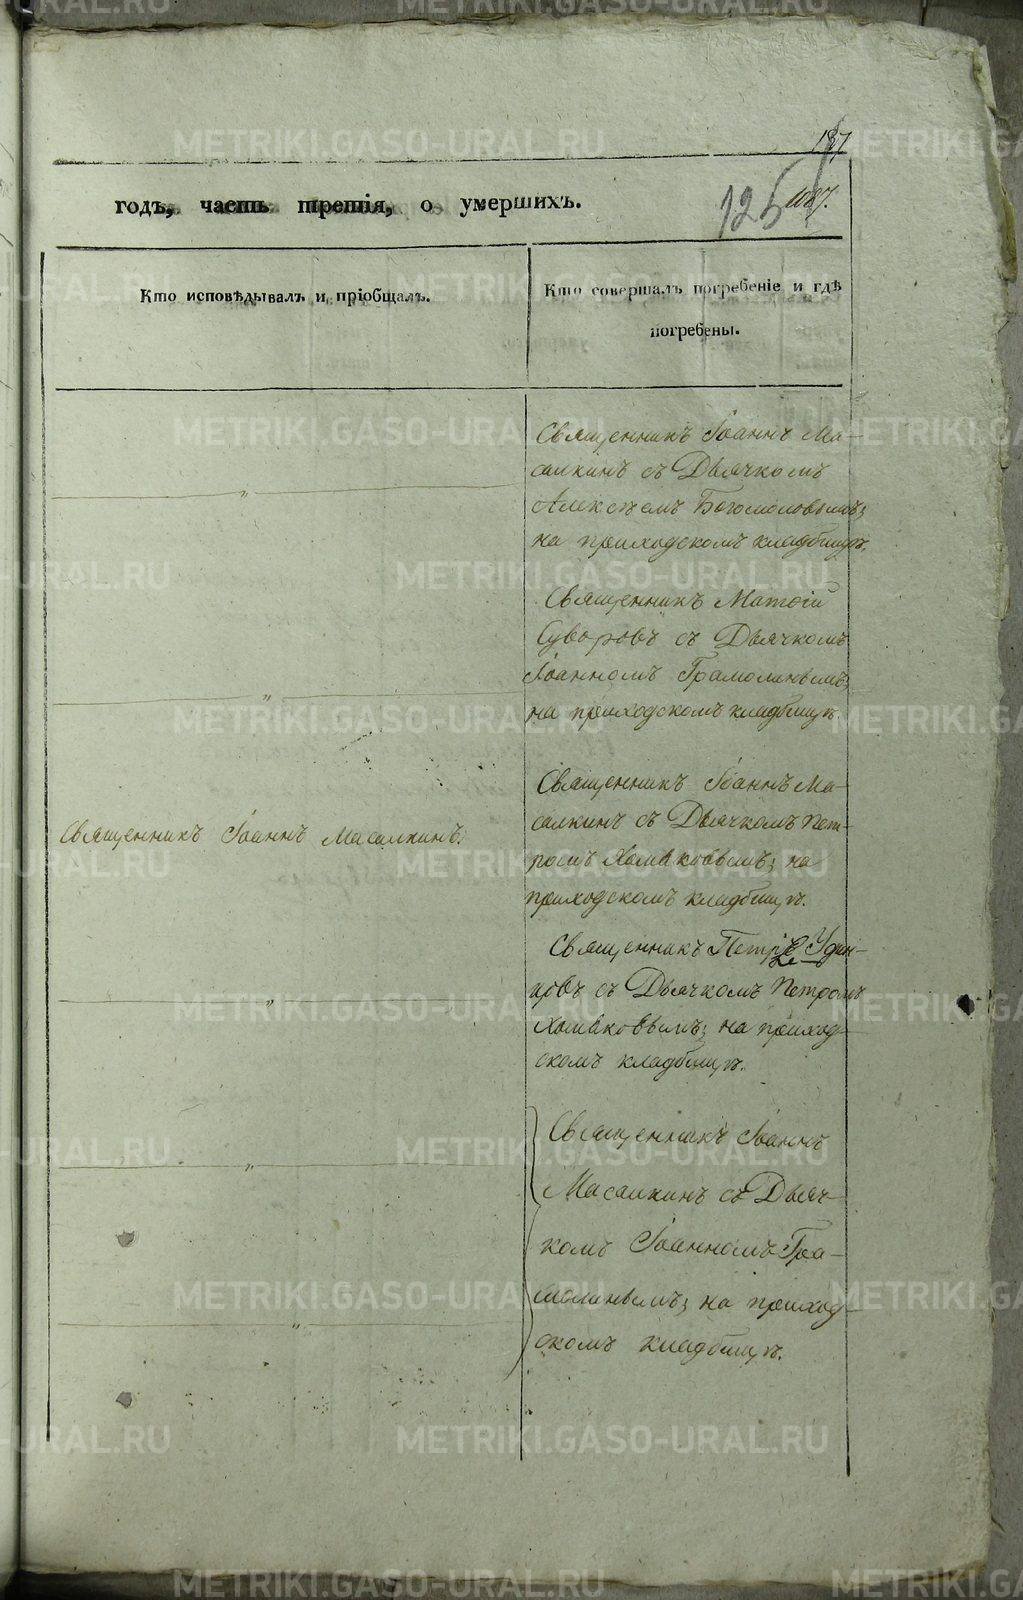 годъ, часть третія, о умершихъ.
125
Кто исповѣдывалъ и пріобщалъ.
Кто совершалъ погребеніе и гдѣ
погребены.
Священникъ Іоаннъ Ма-
салкинъ съ Дьячкомъ
Алексѣемъ Богомоловымъ;
на приходскомъ кладбищѣ.
Священникъ
Суворовъ съ Дьячкомъ
Іоанномъ Грамолинымъ;
на приходскомъ кладбищѣ.
Священникъ Іоаннъ Масалкинъ.
Священникъ Іоаннъ Ма-
салкинъ съ Дьячкомъ Пет-
ромъ Хомяковымъ; на
приходскомъ кладбищѣ.
Священникъ Петръ Удин-
цовъ съ Дьячкомъ Петромъ
Хомяковымъ; на приход-
скомъ кладбищѣ.
Священникъ Іоаннъ
Масалкинъ съ Дьяч-
комъ Іоанномъ Гра-
молинымъ; на приход-
скомъ кладбищѣ.
METRIKI.GASO-URAL.RU